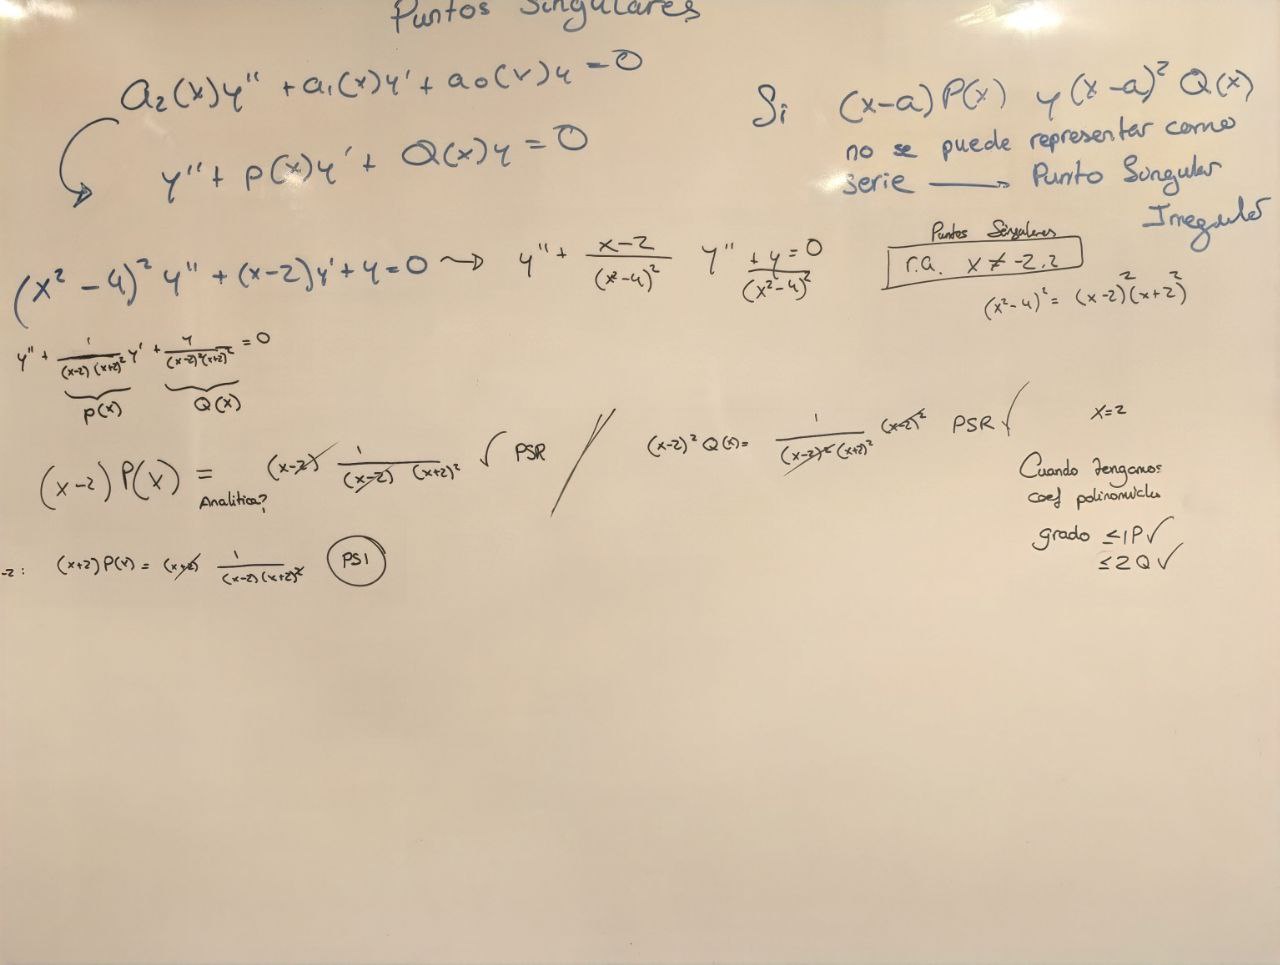 Puntos Singulares
a₂(x)y'' + a₁(x)y' + a₀(x)y = 0
y'' + p(x)y' + Q(x)y = 0
Si (x-a)P(x) y (x-a)² Q(x)
no se puede representar como
serie → Punto Singular
Irregular
(x² - 4)² y'' + (x-2)y' + y = 0 → y'' + (x-2)/(x²-4)² y'' + y/(x²-4)² = 0
Puntos Singulares
r.a. x ≠ -2, 2
(x²-4)² = (x-2)²(x+2)²
y'' + 1/((x-2)(x+2)²) y' + y/((x-2)²(x+2)²) = 0
p(x) Q(x)
(x-2) P(x) = (x-2) 1/((x-2)(x+2)²) ✓ PSR / (x-2)² Q(x) = 1/((x-2)²(x+2)²) (x-2)² PSR ✓
Analitica?
x=2
Cuando tengamos
coef polinomiales
grado ≤1 P ✓
≤2 Q ✓
-2: (x+2)P(x) = (x+2) 1/((x-2)(x+2)²) PSI